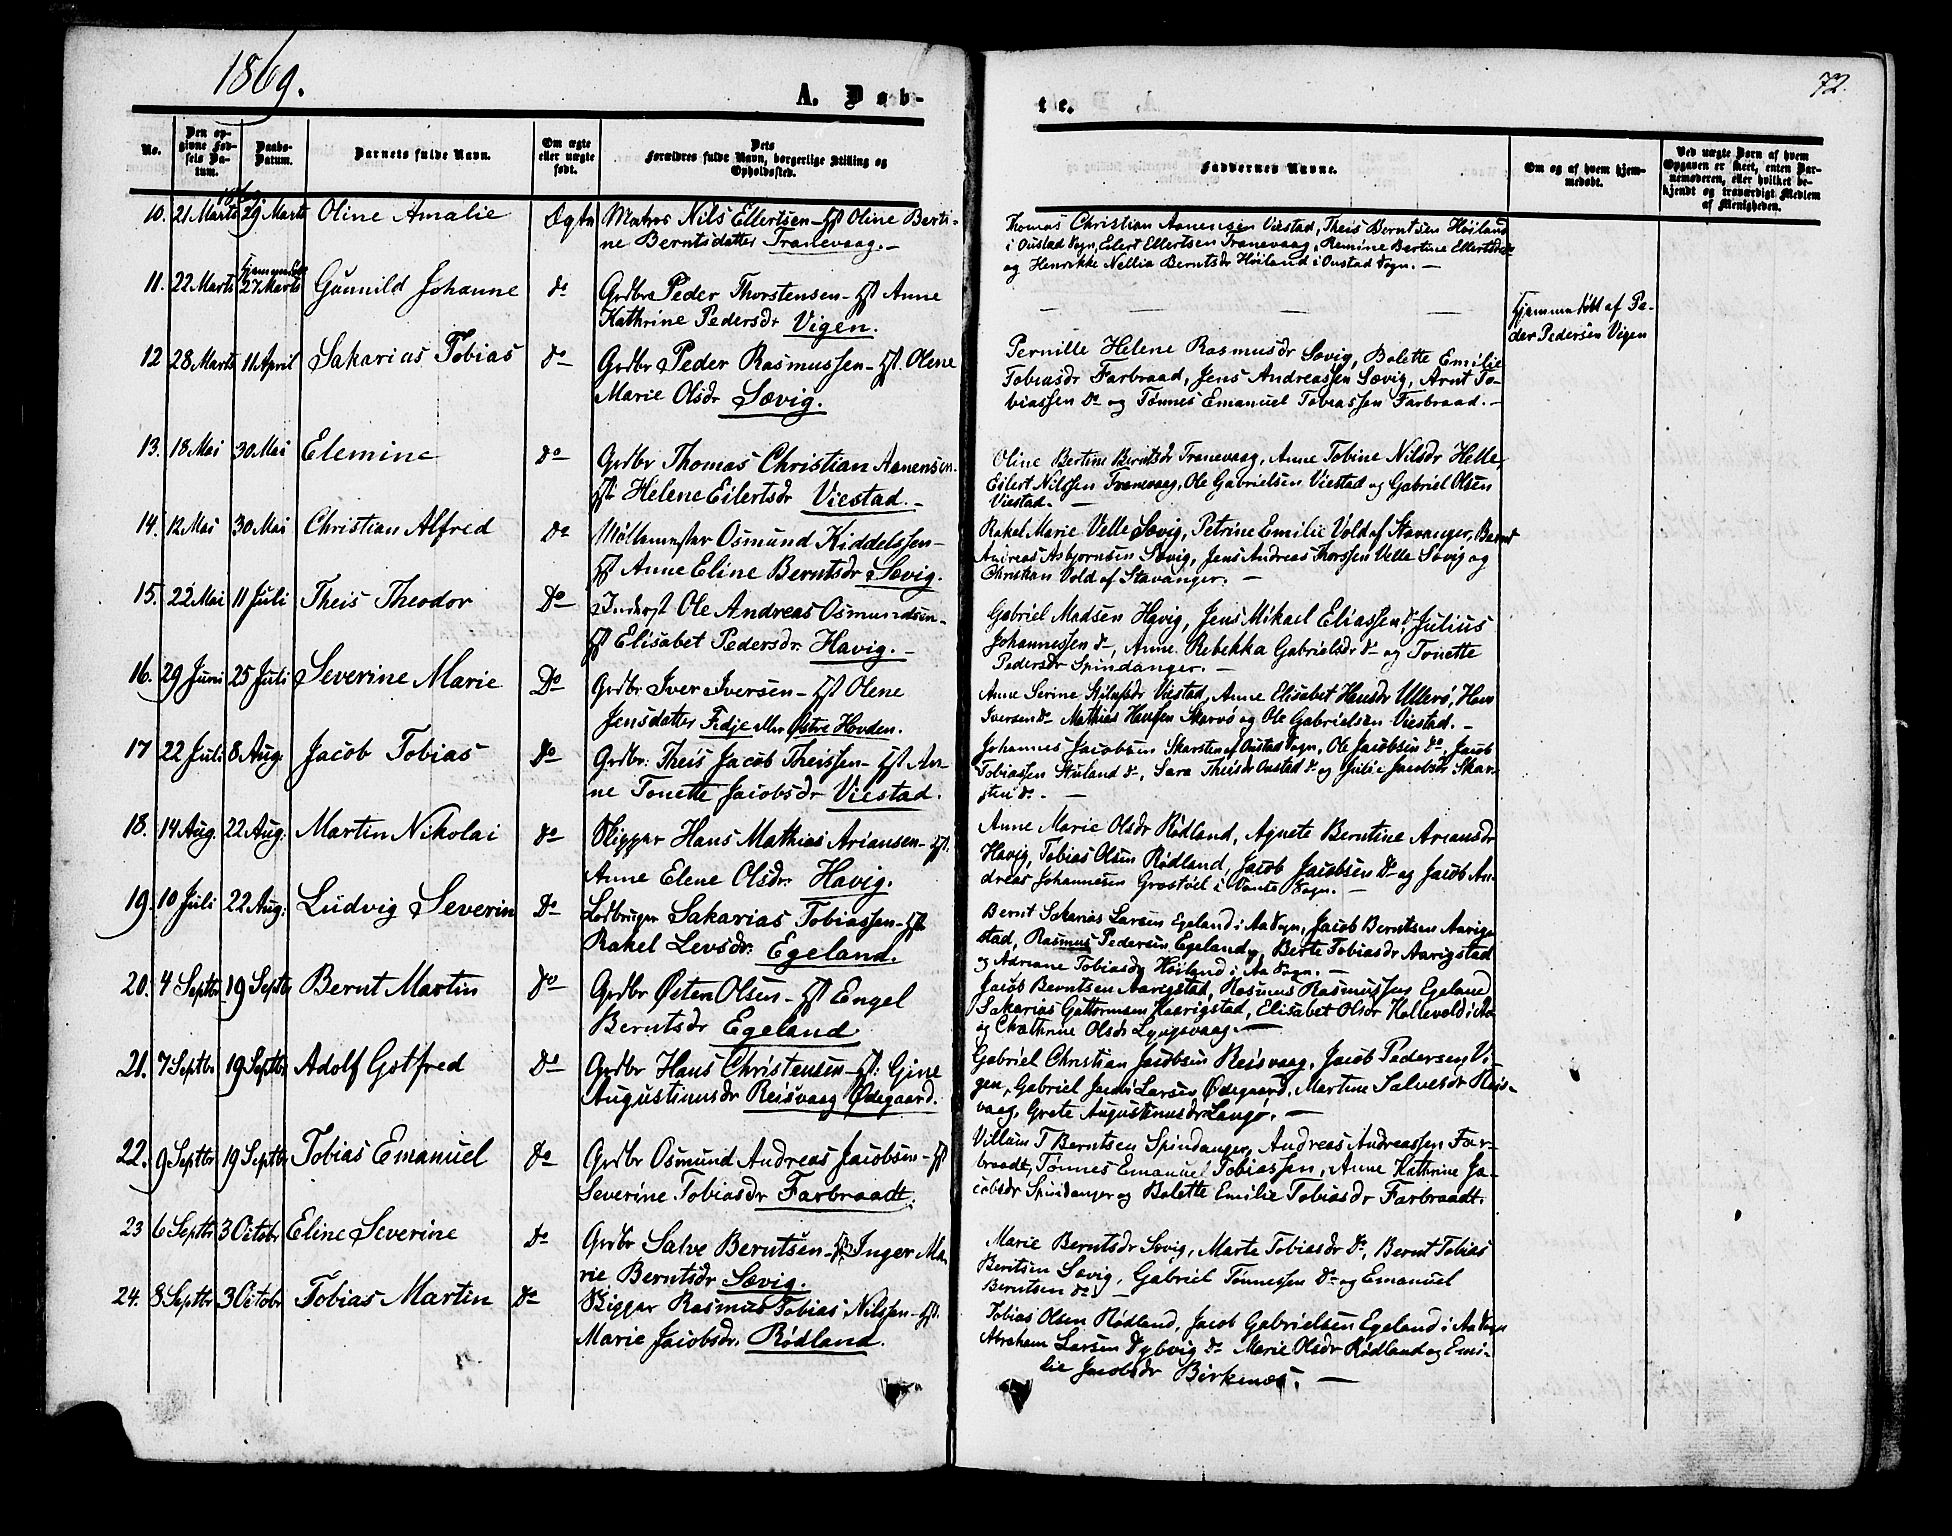 1869.
A. Døb-
No.
Den op-
givne Fød-
sels Da-
tum.
Daabs-
Datum.
Barnets fulde Navn.
Om ægte
eller uægte
født.
Dets
Forældres fulde Navn, borgerlige Stilling og
Opholdssted.
10. 21 Marts 29 Marts Oline Amalie Ægte Matros Nils Ellertsen - Hst Oline Berti-
ne Berntsdatter Tranevaag. -
11. 22 Marts 27 Marts Gunnild Johanne do Grdbr Peder Thorstensen - Hst Anne
Kathrine Pedersdr Vigen.
12 28 Marts 11 April Sakarias Tobias do Grdbr Peder Rasmussen - Hst. Olene
Marie Olsdr Sævig.
13. 18 Mai 30 Mai Elemine do Grdbr Thomas Christian Aanensen.
Hst. Helene Eilertsdr Viestad. -
14. 12 Mai 30 Mai Christian Alfred do Møllemester Osmund Kiddelssen -
Hst Anne Eline Berntsdr Sævig.
15. 22 Mai 11 Juli Theis Theodor Do Inderst Ole Andreas Osmundsen -
Hst Elisabet Pedersdr. Havig. -
16. 29 Juni 25 Juli Severine Marie Do Grdbr Iver Iversen - Hst Olene
Jensdatter Fedje eller Østre Hovden.
17 22 Juli 8 Aug. Jacob Tobias Do Grdbr. Theis Jacob Theissen - Hst An-
ne Tonette Jacobsdr Viestad.
18. 14 Aug. 22 Aug: Martin Nikolai do Bligger Hans Mathias Ariansen - Hst.
Anne Elene Olsdr. Havig.
19. 10 Juli 22 Aug: Ludvig Severin Do Ledbruger Sakarias Tobiassen - Hst
Rakel Levsdr. Egeland.
20. 4 Septbr 19 Septbr Bernt Martin Do Grdbr Østen Olsen - Hst Engel
Berntsdr Egeland
21. 7 Septbr 19 Septbr Adolf Gotfred Do Grdbr Hans Christensen - Hst: Gine
Augustinusdr Reisvaag Ødegaard.
22. 9 Septbr 19 Septbr Tobias Emanuel do Grdbr Osmund Andreas Jacobsen - Hst
Severine Tobiasdr Farbraadt.
23 6 Septbr 3 Octobr Eline Severine Do Grdbr Salve Berntsen - Hst Inger Ma-
rie Berntsdr Sævig.
24. 8 Septbr 3 Octobr Tobias Martin do Bligger Rasmus Tobias Nilssen - Hst.
Marie Jacobsdr. Rødland.
72.
te.
Faddernes Navne.
Om og af hvem hjem-
medøbt.
Ved uægte Børn af hvem
Opgaven er skeet, enten Bar-
nemoderen, eller hvilket be-
kjendt og troværdigt Medlem
af Menigheden.
Thomas Christian Aanensen Viestad, Theis Berntsen Høiland
i Oustad Sogn, Elert Ellertsen Tranevaag, Remine Bertine Ellertsdr
og Henrikke Nellia Berntsdr Høiland i Oustad Sogn. -
Hjemmedøbt af Pe-
der Pedersen Vigen
Pernille Helene Rasmusdr Sævig, Bolette Emilie
Tobiasdr Farbraad, Jens Andreassen Sævig, Arnt To-
biassen do og Tønnes Emanuel Tobiassen Farbraad. -
Oline Bertine Berntsdr Tranevaag, Anne Tobine Nilsdr Helle,
Eilert Nilssen Tranevaag, Ole Gabrielsen Viestad og Gabriel Olsen
Viestad. -
Rakel Marie Velle Sævig, Petrine Emilie Vold af Stavanger, Bernt
Andreas Asbjørnsen Sævig, Jens Andreas Thorssen Velle Sævig og
Christian Vold af Stavanger. -
Gabriel Madsen Havig, Jens Mikael Eliassen do, Julius
Johannessen do, Anne Rebekka Gabrielsdr do og Tonette
Pedersdr Spindanger. -
Anne Serine Viestad, Anne Elisabet Hansdr Ullerø, Hans
Iversen do Mathias Hanssen Skarvø og Ole Gabrielsen Viestad. -
Johannes Jacobsen Skarsten af Oustad Sogn, Ole Jacobsen do, Jacob
Tobiassen Stuland do, Sara Theisdr Oustad do og Julie Jacobsdr Skar-
sten do. -
Anne Marie Olsdr Rødland, Agnete Berntine Ariansdr
Havig, Tobias Olsen Rødland, Jacob Jacobsen do og Jacob An-
dreas Johannesen Grostøil i Vanse Sogn. -
Bernt Sakarias Larsen Egeland i Aa Sogn, Jacob Berntsen Aarig-
stad, Rasmus Pedersen Egeland, Berte Tobiasdr Aarigstad
og Adriane Tobiasdr Høiland i Aa Sogn. -
Jacob Berntsen Aarigstad, Rasmus Rasmussen Egeland
Sakarias Guttormsen Aarigstad, Elisabet Olsdr Kollevold i Aa
og Chathrine Olsdr Lyngsvaag. -
Gabriel Christian Jacobsen Reisvaag, Jacob Pedersen Vi-
gen, Gabriel Jacob Larsen Ødegaard, Martine Salvesdr Reis-
vaag, Grete Augustinusdr Langø. -
Villum T Berntsen Spindanger, Andreas Andreassen Far-
braadt, Tønnes Emanuel Tobiassen, Anne Kathrine Ja-
cobsdr Spindanger og Bolette Emilie Tobiasdr Farbraadt.
Marie Berntsdr Sævig, Marte Tobiasdr Do, Bernt Tobias
Berntsen Sævig, Gabriel Tønnessen Do og Emanuel
Berntsen do. -
Tobias Olsen Rødland, Jacob Gabrielsen Egeland i Aa Sogn
Abraham Larsen Dybvig do Marie Olsdr Rødland og Emi-
lie Jacobsdr Birkenæs. -